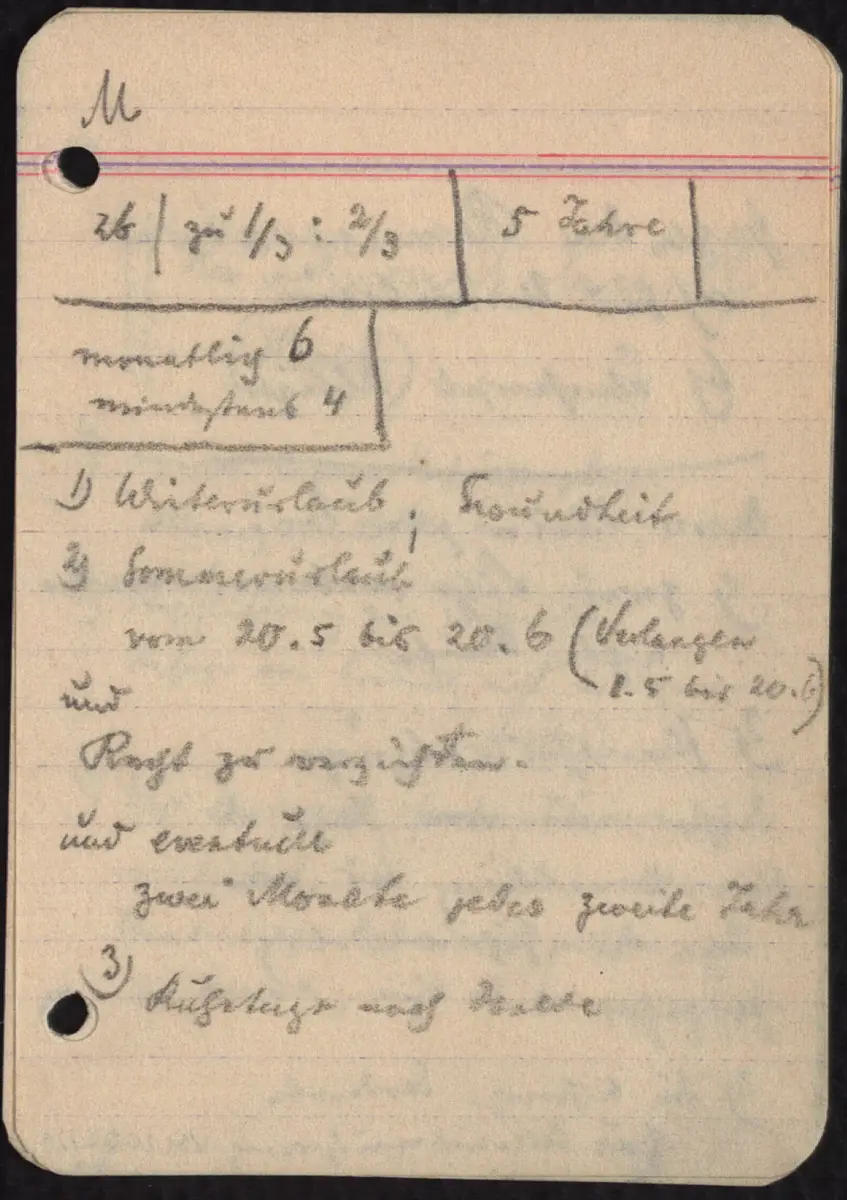 M
26 | zu 1/3 : 2/3 | 5 Jahre
monatlich 6
mindestens 4
1) Winterurlaub ; Gesundheit
2) Sommerurlaub
vom 20.5 bis 20.6 (Verlangen
1.5 bis 20.6)
und
Recht zu verzichten.
und eventuell
zwei Monate jedes zweite Jahr
3) Ruhetage nach Isolde